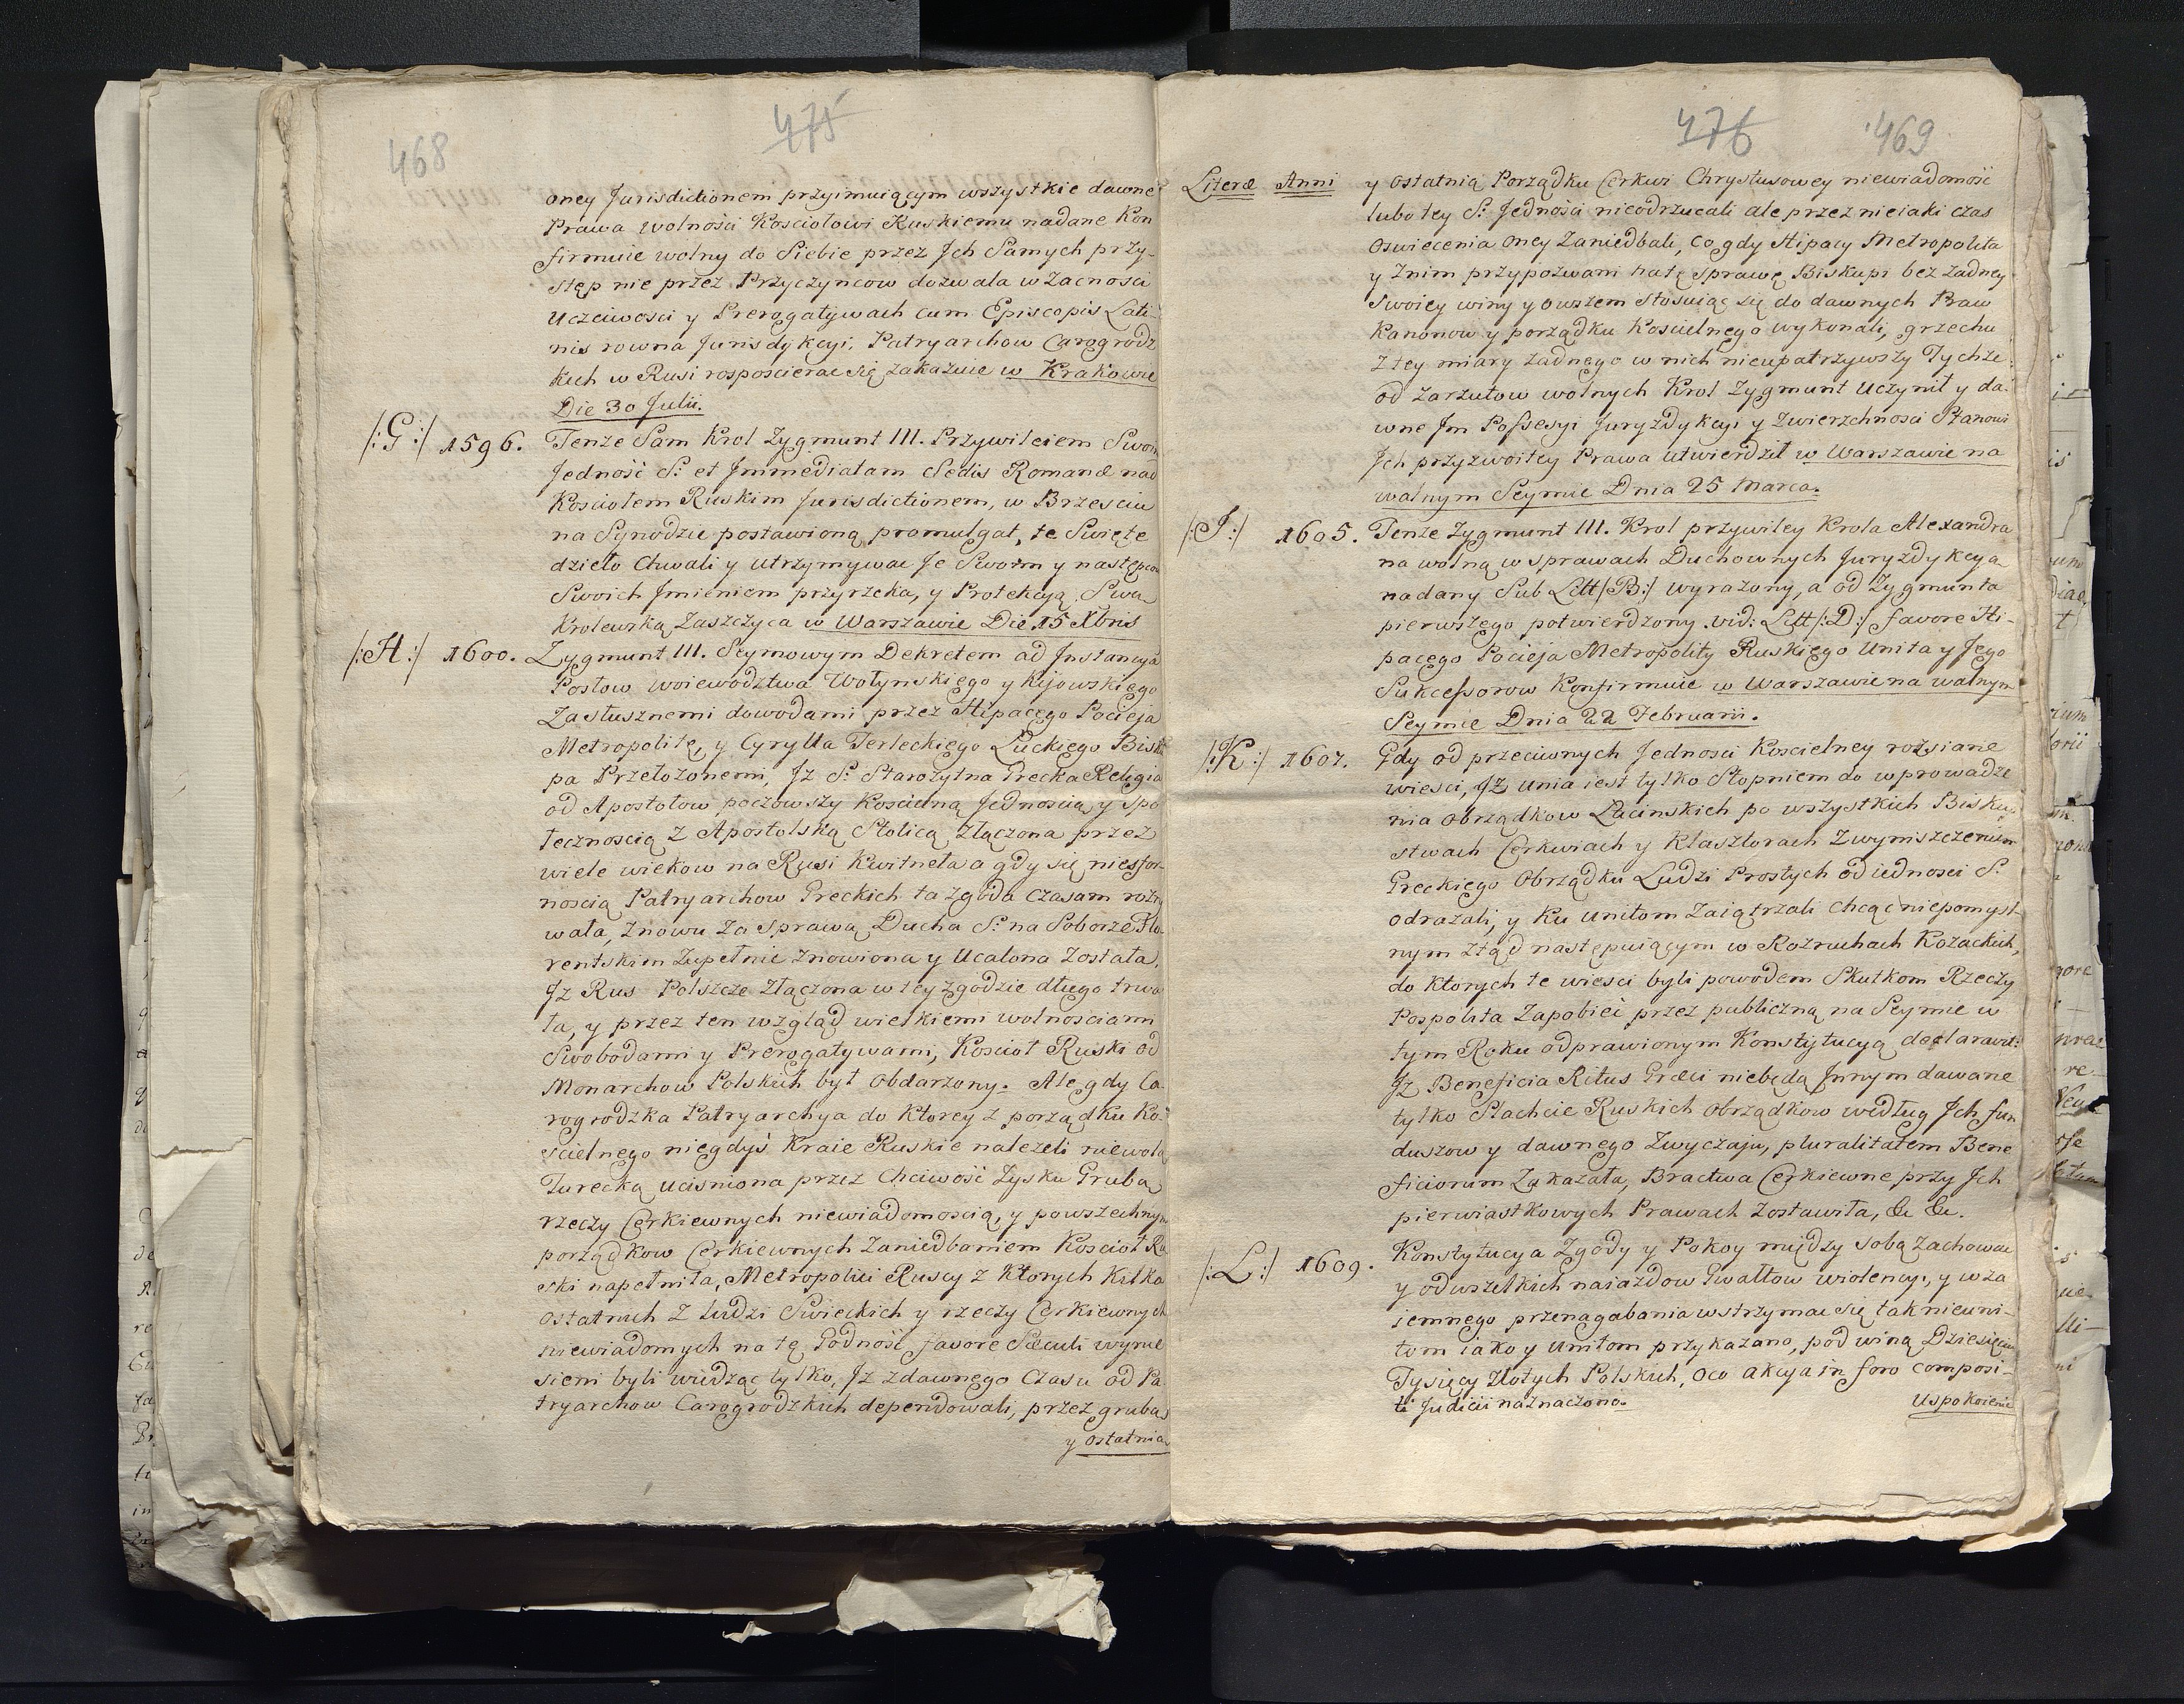 468
475
oney Jurisdictionem przyimuiącym wszystkie dawne
Prawa wolności Kosciołowi Ruskiemu nadane Kon
firmuie wolny do Siebie przez Jch Samych przy-
stęp nie przez Przyczyncow dozwala w Zacnosci
Uczciwosci y Prerogatywach cum Episcopis Lati-
nis rowna Jurisdykcyi, Patryarchow Carogrodz
kich w Rusi rosposcierac się zakazuie w Krakowie
Die 30 Julii.
/:G:/ 1596. Tenze Sam Krol Zygmunt III. Przywileiem Swoim
Jedność S: et Jmmediatam Sedis Romanæ nad
Kosciołem Ruskim Jurisdictionem, w Brzesciu
na Synodzie postawioną promulgat, te Swięte
dzieło Chwali y utrzymywac Je Swoim y następcow
Swoich Jmieniem przyrzeka, y Protekcyą Swa
Krolewską Zaszczyca w Warszawie Die 15 Xbris
/:H:/ 1600. Zygmunt III. Seymowym Dekretem ad Jnstancya
Posłow woiewodztwa Wołynskiego y Kijowskiego
Za słusznemi dowodami przez Hipacego Pocieja
Metropolitę, y Cyrylla Terleckiego Łuckiego Bisku
pa Przełozonemi, Jz S: Starozytna Grecka Religia
od Apostołow począwszy Koscielną Jednoscią y spo
łecznoscią z Apostolską Stolicą złączona przez
wiele wiekow na Rusi Kwitneła a gdy się niesfor-
noscią Patryarchow Greckich ta zgoda czasam rozry
wała, znowu za sprawą Ducha S: na Soborze Flo-
rentskim zupełnie znowiona y Ucalona Została,
Jz Rus Polszcze złączona w tey zgodzie długo trwa
ła, y przez ten wzgląd wielkiemi wolnosciami
Swobodami y Prerogatywami, Kosciol Ruski od
Monarchow Polskich był obdarzony. Ale gdy Ca-
rogrodzka Patryarchya do Ktorey z porządku Ko-
scielnego niegdyś Kraie Ruskie nalezeli niewolą
Turecką ucisniona przez Chciwość Zysku Grubą
rzeczy Cerkiewnych niewiadomoscią, y powszechnym
porządkow Cerkiewnych Zaniedbaniem Kosciol Ru
ski napełniła, Metropolici Ruscy z Ktorych Kilka
ostatnich z ludzi Swieckich y rzeczy Cerkiewnych
niewiadomych na tę Godność favore Sæculi wynie
sieni byli widząc tylko, Jz zdawnego Czasu od Pa
tryarchow Carogrodzkich dependowali, przez grubą
y ostatnią
476
469
Literæ Anni
y ostatnią Porządku Cerkwi Chrystusowey niewiadomość
lubo tey S: Jedności nieodrzucali ale przez nieiaki czas
Oswiecenia oney Zaniedbali, co gdy Hipacy Metropolita
y Znim przypozwani na tę sprawę Biskupi bez zadney
Swoiey winy y owszem stosuiąc się do dawnych Praw
Kanonow y porządku Koscielnego wykonali, grzechu
z tey miary zadnego w nich nieupatrzywszy Tychze
od zarzutow wolnych Krol Zygmunt Uczynił y da-
wne Jm Possesyi Juryzdykcyi y Zwierzchnosci Stanowi
Jch przyzwoitey Prawa utwierdził w Warszawie na
walnym Seymie Dnia 25 Marca.
/:J:/ 1605. Tenze Zygmunt III. Krol przywiley Krola Alexandra
na wolną w sprawach Duchownych Juryzdykcya
nadany Sub Litt/:B:/ wyrazony, a od Zygmunta
pierwszego potwierdzony vid: Litt/:D:/ favore Hi-
pacego Pocieja Metropolity Ruskiego Unita y Jego
Sukcessorow Konfirmuie w Warszawie na walnym
Seymie Dnia 22 Februarii.
/:K:/ 1607. Gdy od przeciwnych Jednosci Koscielney rozsiane
wiesci, Jz Unia iest tylko Stopniem do wprowadze
nia obrządkow Łacinskich po wszystkich Bisku
stwach Cerkwiach y Klasztorach zwyniszczeniem
Greckiego Obrządku Ludzi Prostych od iednosci S:
odrazali, y Ku Unitom Zaiątrzali chcąc niepomysl-
nym ztąd następuiącym w Rozruchach Kozackich,
do Ktorych te wiesci byli powodem Skutkom Rzeczy
Pospolita Zapobieć przez publiczną na Seymie w
tym Roku odprawionym Konstytucyą declaravit:
Jz Beneficia Ritus Græci niebędą Jnnym dawane
tylko Slachcie Ruskich Obrządkow według Jch fun
duszow y dawnego Zwyczaju, pluralitatem Bene
ficiorum Zakazała, Bractwa Cerkiewne przy Jch
pierwiastkowych Prawach zostawiła, &c &c.
/:L:/ 1609. Konstytucya Zgody y Pokoy między sobą zachowac
y od wszelkich naiazdow Gwałtow wiolencyi, y wza
iemnego przenagabania wstrzymac się tak nieuni-
tom iako y Unitom przykazano, pod winą Dziesięciu
Tysięcy Złotych Polskich, oco akcya in foro composi-
ti Judicii naznaczono.
Uspokoienie